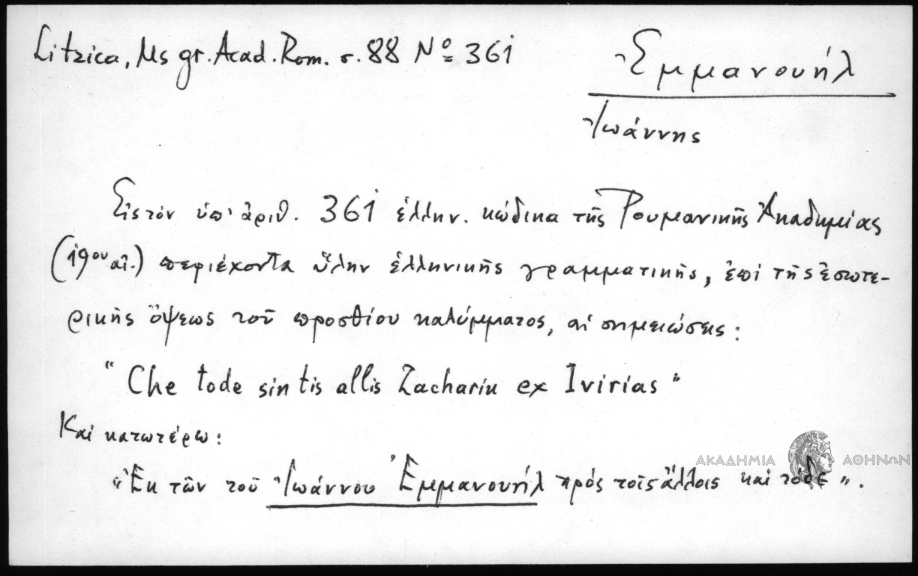 Litzica, Ms gr. Acad. Rom. σ. 88 Nº 361
Ἐμμανουήλ
Ἰωάννης
Εἰς τόν ὑπ' ἀριθ. 361 ἑλλην. κώδικα τῆς Ρουμανικῆς Ἀκαδημίας
(19ου αἰ.) περιέχοντα ὕλην ἑλληνικῆς γραμματικῆς, ἐπί τῆς ἐσωτε-
ρικῆς ὄψεως τοῦ προσθίου καλύμματος, αἱ σημειώσεις:
"Che tode sin tis allis Zachariu ex Ivirias"
Καί κατωτέρω:
"Ἐκ τῶν τοῦ Ἰωάννου Ἐμμανουήλ πρός τοῖς ἄλλοις καί τόδε".
ΑΚΑΔΗΜΙΑ ΑΘΗΝΩΝ